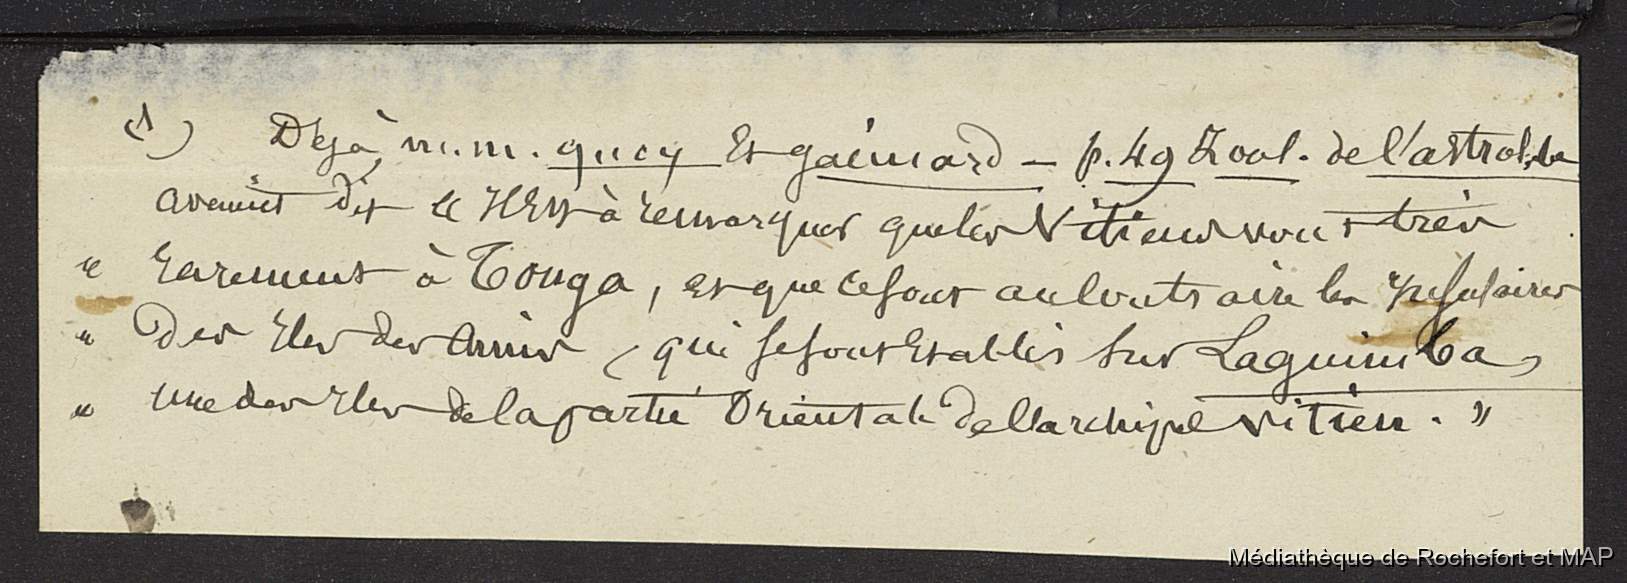 (1) Déjà, m.m. quoy Et gaimard — p. 49 Zool. de l'astrolabe
avaient dit « Il Est à remarquer que les Vitiens vont très
« rarement à Tonga, et que ce sont au contraire les Insulaires
« des Iles des Amis, qui se sont Etablis sur Laguimba,
« une des Iles de la partie Orientale de l'archipel vitien. »
Médiathèque de Rochefort et MAP